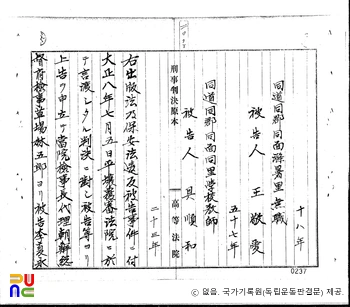 十八年
同道同郡同面滸暑里無職
被告人 王敬雯
五十七年
同道同郡同面同里學校教師
被告人 具順和
二十三年
刑事判決原本
高等法院
右出版法及保安法違反被告事件ニ付
大正八年七月五日平壤覆審法院ニ於
テ言渡シタル判決ニ對シ被告等ヨリ
上告ヲ申立テ當院檢事長代理朝鮮總
督府檢事草場林五郎ヨリ被告李夏永
0237
ⓒ 없음. 국가기록원(독립운동판결문) 제공.